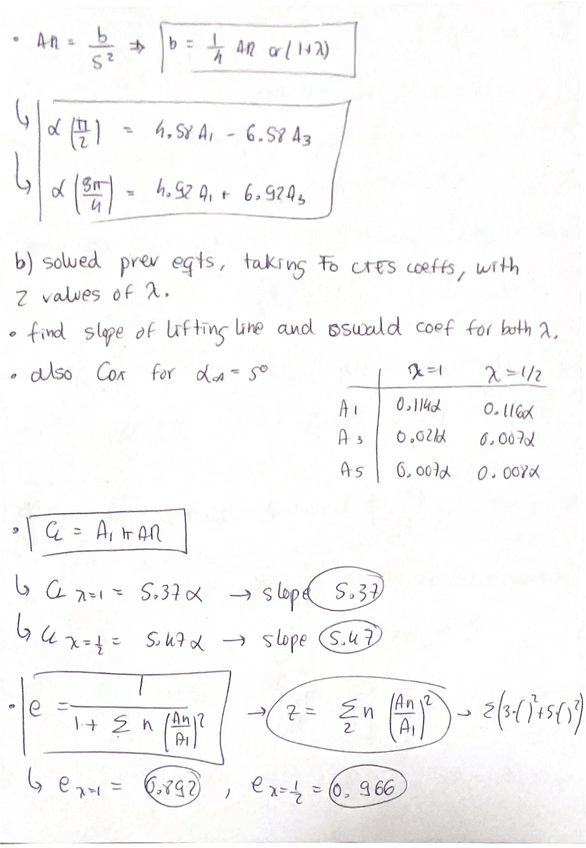 • AR = b/S² ⇒ b = 1/4 AR cr(1+λ)
↳ α(π/2) = 4.58 A₁ - 6.58 A₃
↳ α(3π/4) = 4.92 A₁ + 6.92 A₃
b) solved prev eqts, taking Fo CTES coeffs, with
2 values of λ.
• find slope of lifting line and oswald coef for both λ.
• also for α = 5º
λ=1 λ=1/2
A₁ 0.114α 0.116α
A₃ 0.021α 0.007α
A₅ 0.007α 0.008α
• CL = A₁ π AR
↳ CL λ=1 = 5.37 α → slope 5.37
↳ CL λ=1/2 = 5.47 α → slope 5.47
• e = 1/(1 + Σ n (An/A₁)²) → z = Σ₂ n (An/A₁)² → Σ(3·( )²+5·( )²)
↳ e λ=1 = 0.892, e λ=1/2 = 0.966